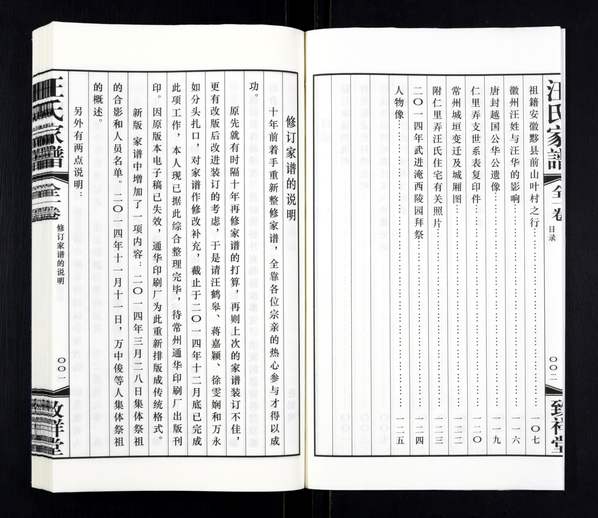 汪氏家谱
全一卷
目录
〇〇二
致祥堂
祖籍安徽黟县前山叶村之行……一〇七
徽州汪姓与汪华的影响……一一六
唐封越国公华公遗像……一一九
仁里弄支世系表复印件……一二〇
常州城垣变迁及城厢图……一二二
附仁里弄汪氏住宅有关照片……一二三
二〇一四年武进淹西陵园拜祭……一二四
人物像……一二五
修订家谱的说明
十年前着手重新整修家谱，全靠各位宗亲的热心参与才得以成
功。
原先就有时隔十年再修家谱的打算，再则上次的家谱装订不佳，
更有改版后改进装订的考虑，于是请汪鹤皋、蒋嘉颖、徐雯娴和万永
如分头扎口，对家谱作修改补充，截止于二〇一四年十二月底已完成
此项工作，本人现已据此综合整理完毕，待常州通华印刷厂出版刊
印。因原版本电子稿已失效，通华印刷厂为此重新排版成传统格式。
新版家谱中增加了一项内容：二〇一四年三月二八日集体祭祖
的合影和人员名单。二〇一四年十一月十一日，万中俊等人集体祭祖
的概述。
另外有两点说明：
汪氏家谱
全一卷
修订家谱的说明
〇〇一
致祥堂